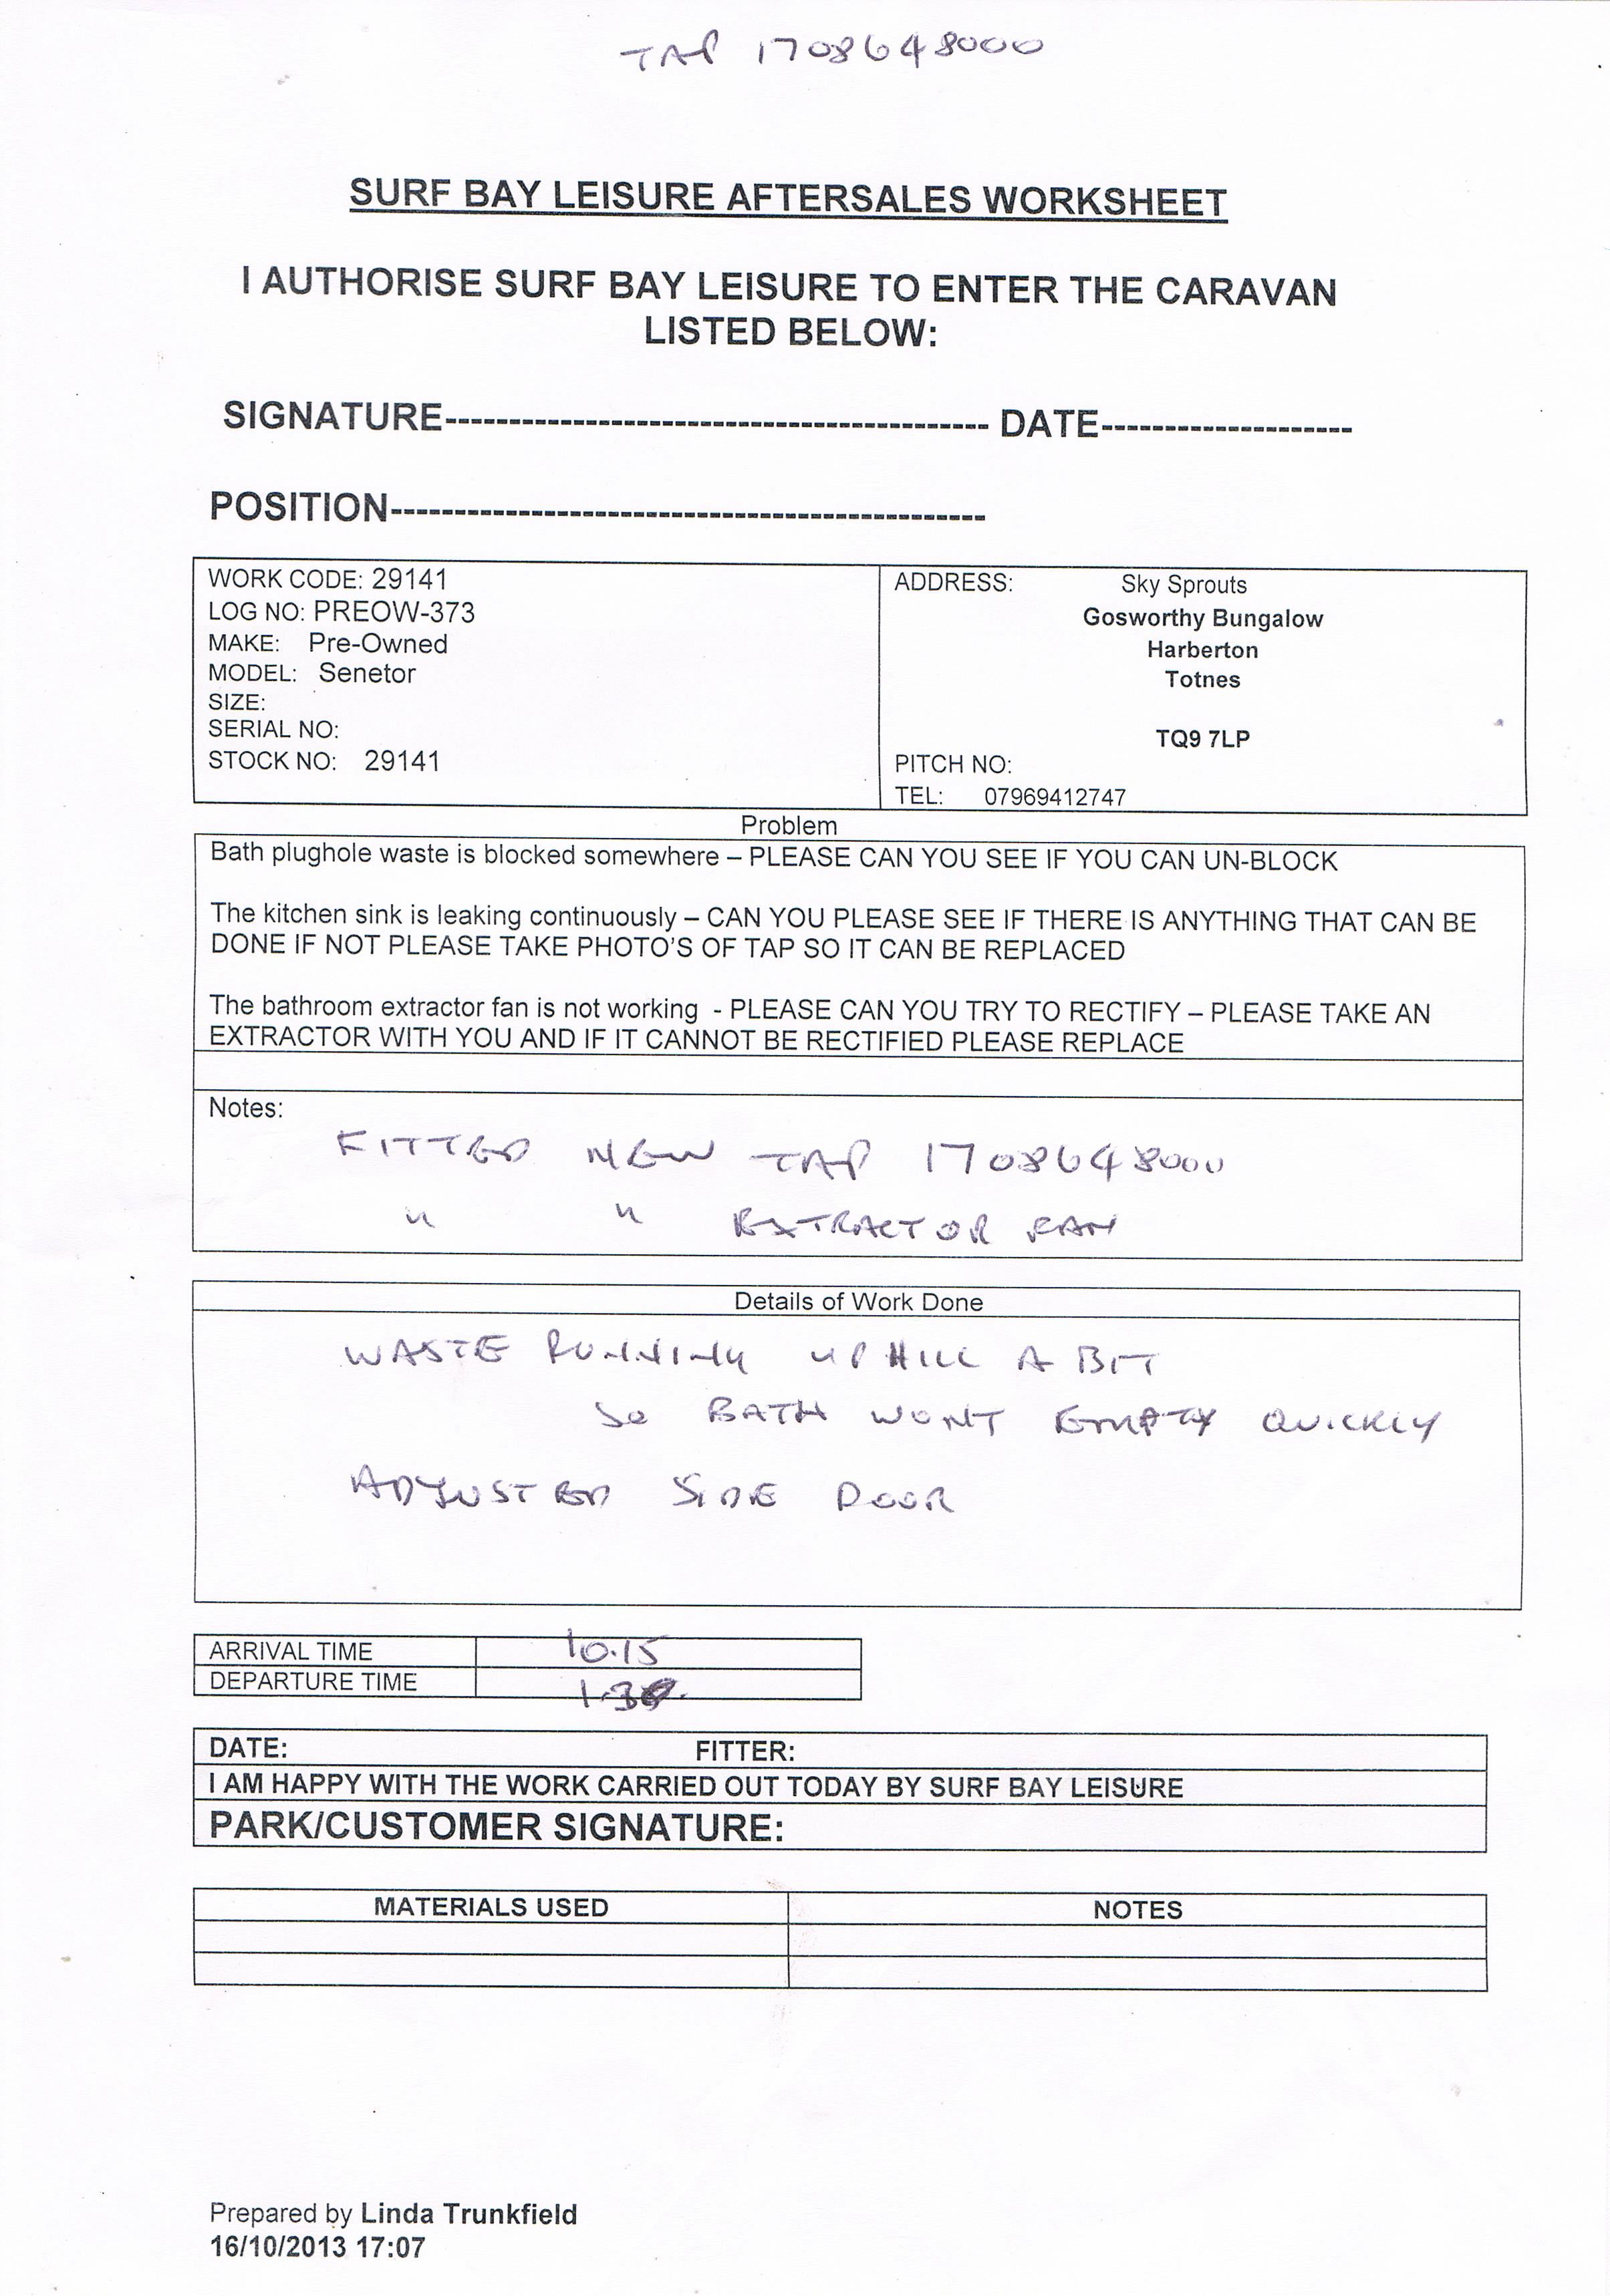 TAP 1708648000
SURF BAY LEISURE AFTERSALES WORKSHEET
I AUTHORISE SURF BAY LEISURE TO ENTER THE CARAVAN
LISTED BELOW:
SIGNATURE------------------------------------------- DATE--------------------
POSITION-----------------------------------------------
WORK CODE: 29141
LOG NO: PREOW-373
MAKE: Pre-Owned
MODEL: Senetor
SIZE:
SERIAL NO:
STOCK NO: 29141
ADDRESS: Sky Sprouts
Gosworthy Bungalow
Harberton
Totnes
TQ9 7LP
PITCH NO:
TEL: 07969412747
Problem
Bath plughole waste is blocked somewhere – PLEASE CAN YOU SEE IF YOU CAN UN-BLOCK
The kitchen sink is leaking continuously – CAN YOU PLEASE SEE IF THERE IS ANYTHING THAT CAN BE
DONE IF NOT PLEASE TAKE PHOTO'S OF TAP SO IT CAN BE REPLACED
The bathroom extractor fan is not working - PLEASE CAN YOU TRY TO RECTIFY – PLEASE TAKE AN
EXTRACTOR WITH YOU AND IF IT CANNOT BE RECTIFIED PLEASE REPLACE
Notes:
FITTED NEW TAP 1708648000
" " EXTRACTOR FAN
Details of Work Done
WASTE RUNNING UPHILL A BIT
SO BATH WONT EMPTY QUICKLY
ADJUSTED SIDE DOOR
ARRIVAL TIME 10.15
DEPARTURE TIME 1.30
DATE: FITTER:
I AM HAPPY WITH THE WORK CARRIED OUT TODAY BY SURF BAY LEISURE
PARK/CUSTOMER SIGNATURE:
MATERIALS USED NOTES
Prepared by Linda Trunkfield
16/10/2013 17:07